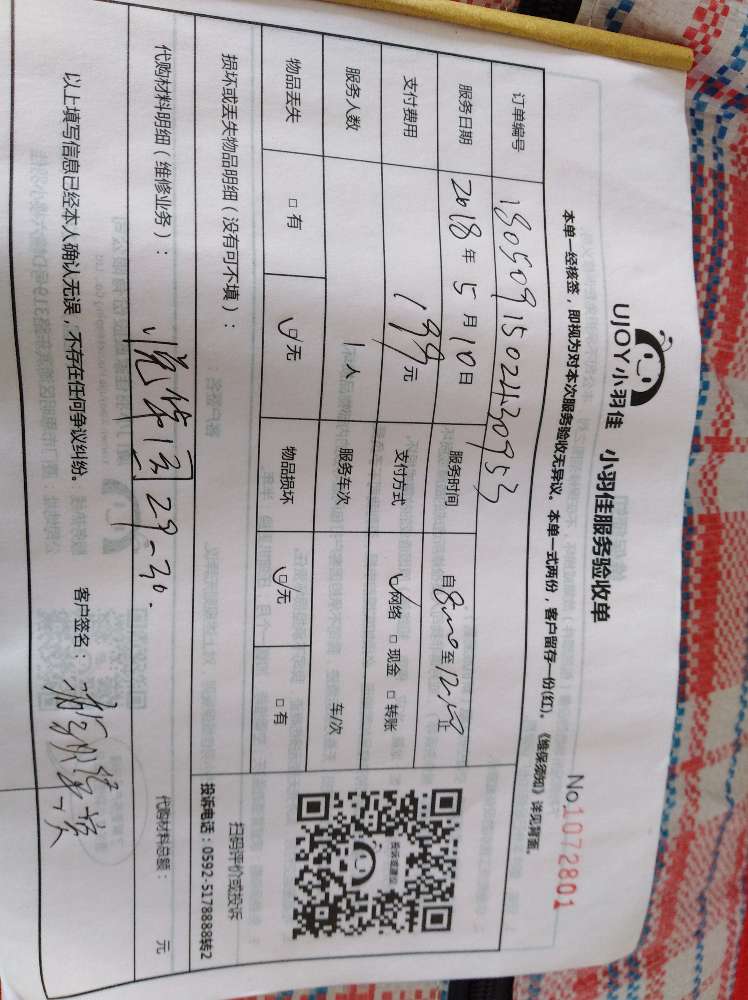 UJOY小羽佳 小羽佳服务验收单
No.1072801
本单一经核签，即视为对本次服务验收无异议。本单一式两份，客户留存一份(红)。《维保须知》详见背面。
订单编号 18050915024430953
服务日期 2018年5月10日 服务时间 自8:00至12:00止
支付费用 199元 支付方式 ☑网络 □现金 □转账
服务人数 1人 服务车次 车/次
物品丢失 □有 ☑无 物品损坏 ☑无 □有
投诉或建议
扫码评价或投诉
投诉电话：0592-5178888转2
损坏或丢失物品明细（没有可不填）：
代购材料明细（维修业务）： 29-30.
代购材料总额： 元
以上填写信息已经本人确认无误，不存在任何争议纠纷。 客户签名：